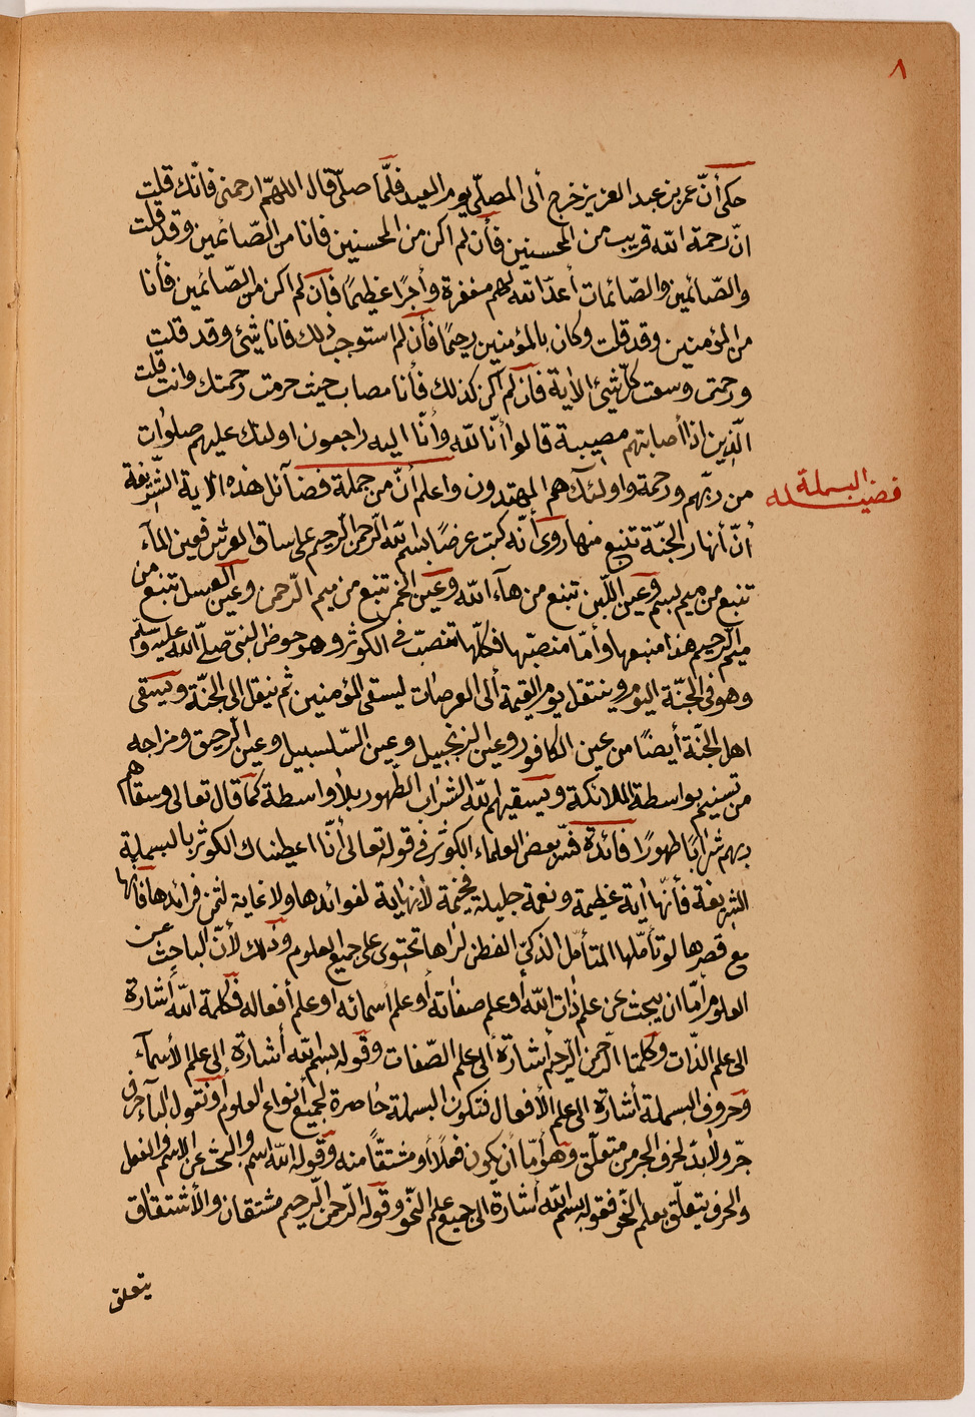 ٨
حكى أنّ عمر بن عبد العزيز خرج ألى المصلّى يوم العيد فلمّا صلّى قال اللهمّ ارحمنى فانّك قلت
انّ رحمة الله قريب من المحسنين فأن لم اكن من المحسنين فانا من الصّائمين وقد قلت
والصّائمين والصّائمات أعدّ الله لهم مغفرة وأجرًا عظيمًا فأن لم اكن من الصّائمين فأنا
من المؤمنين وقد قلت وكان بالمؤمنين رحيمًا فأن لم استوجب ذلك فانا شئ وقد قلت
ورحمتى وسعت كلّ شئ الأية فأن لم أكن كذلك فأنا مصاب حيث حرمت رحمتك وانت قلت
الّذين اذا أصابتهم مصيبة قالوا أنّا للّه وأنّا اليه راجعون اولئك عليهم صلوات
من ربّهم ورحمة واولئك هم المهتدون واعلم أنّ من جملة فضآئل هذه الاية الشّريفة
فضيلة البسملة
أنّ أنهار الجنّة تنبع منها روى أنّه كتب عرضًا بسم الله الرّحمن الرّحيم على ساق العرش فعين المآء
تنبع من ميم بسم وعين اللّبن تنبع من هآء الله وعين الخمر تنبع من ميم الرّحمن وعين العسل تنبع من
ميم الرّحيم هذا منبعها وأمّا منصبّها فكلّها تنصبّ فى الكوثر وهو حوض النّبىّ صلّى الله عليه وسلّم
وهو فى الجنّة اليوم وينتقل يوم القيمة ألى العرصات ليسقى المؤمنين ثم ينقل الى الجنّة ويسقى
اهل الجنّة أيضًا من عين الكافور وعين الزنجبيل وعين السّلسبيل وعين الرّحيق ومزاجه
من تسنيم بواسطة الملائكة ويسقيهم اللّه الشّراب الطهور بلا واسطة كما قال تعالى وسقاهم
ربهم شرابًا طهورًا فائدة فسّر بعض العلماء الكوثر فى قوله تعالى أنّا اعطيناك الكوثر بالبسملة
الشريفة فأنّها اية عظيمة ونعمة جليلة فخيمة لا نهاية لفوائدها ولا غاية لثمن فرائدها فأنّها
مع قصرها لو تأمّلها المتأمّل الذكىّ الفطن لراها تحتوى على جميع العلوم وذلك لأنّ الباحث عن
العلوم امّا ان يبحث عن علم ذات اللّه أو علم صفاته أو علم اسمائه او علم أفعاله فكلمة اللّه أشارة
الى علم الذّات وكلمتا الرّحمن الرّحيم أشارة ألى علم الصّفات وقوله بسم الله أشارة إلى علم الأسمآء
وحروف البسملة أشارة الى علم الأفعال فتكون البسملة حاصرة لجميع أنواع العلوم أو نقول البآء حرف
جرّ ولا بدّ لحرف الجر من متعلّق وهو امّا أن يكون فعلاً أو مشتقًّا منه وقوله اللّه اسم والبحث عن الاسم والفعل
والحرف يتعلّق بعلم النّحو فقوله بسم اللّه أشارة الى جميع علم النّحو وقوله الرّحمن الرّحيم مشتقان والأشتقاق
يتعلق